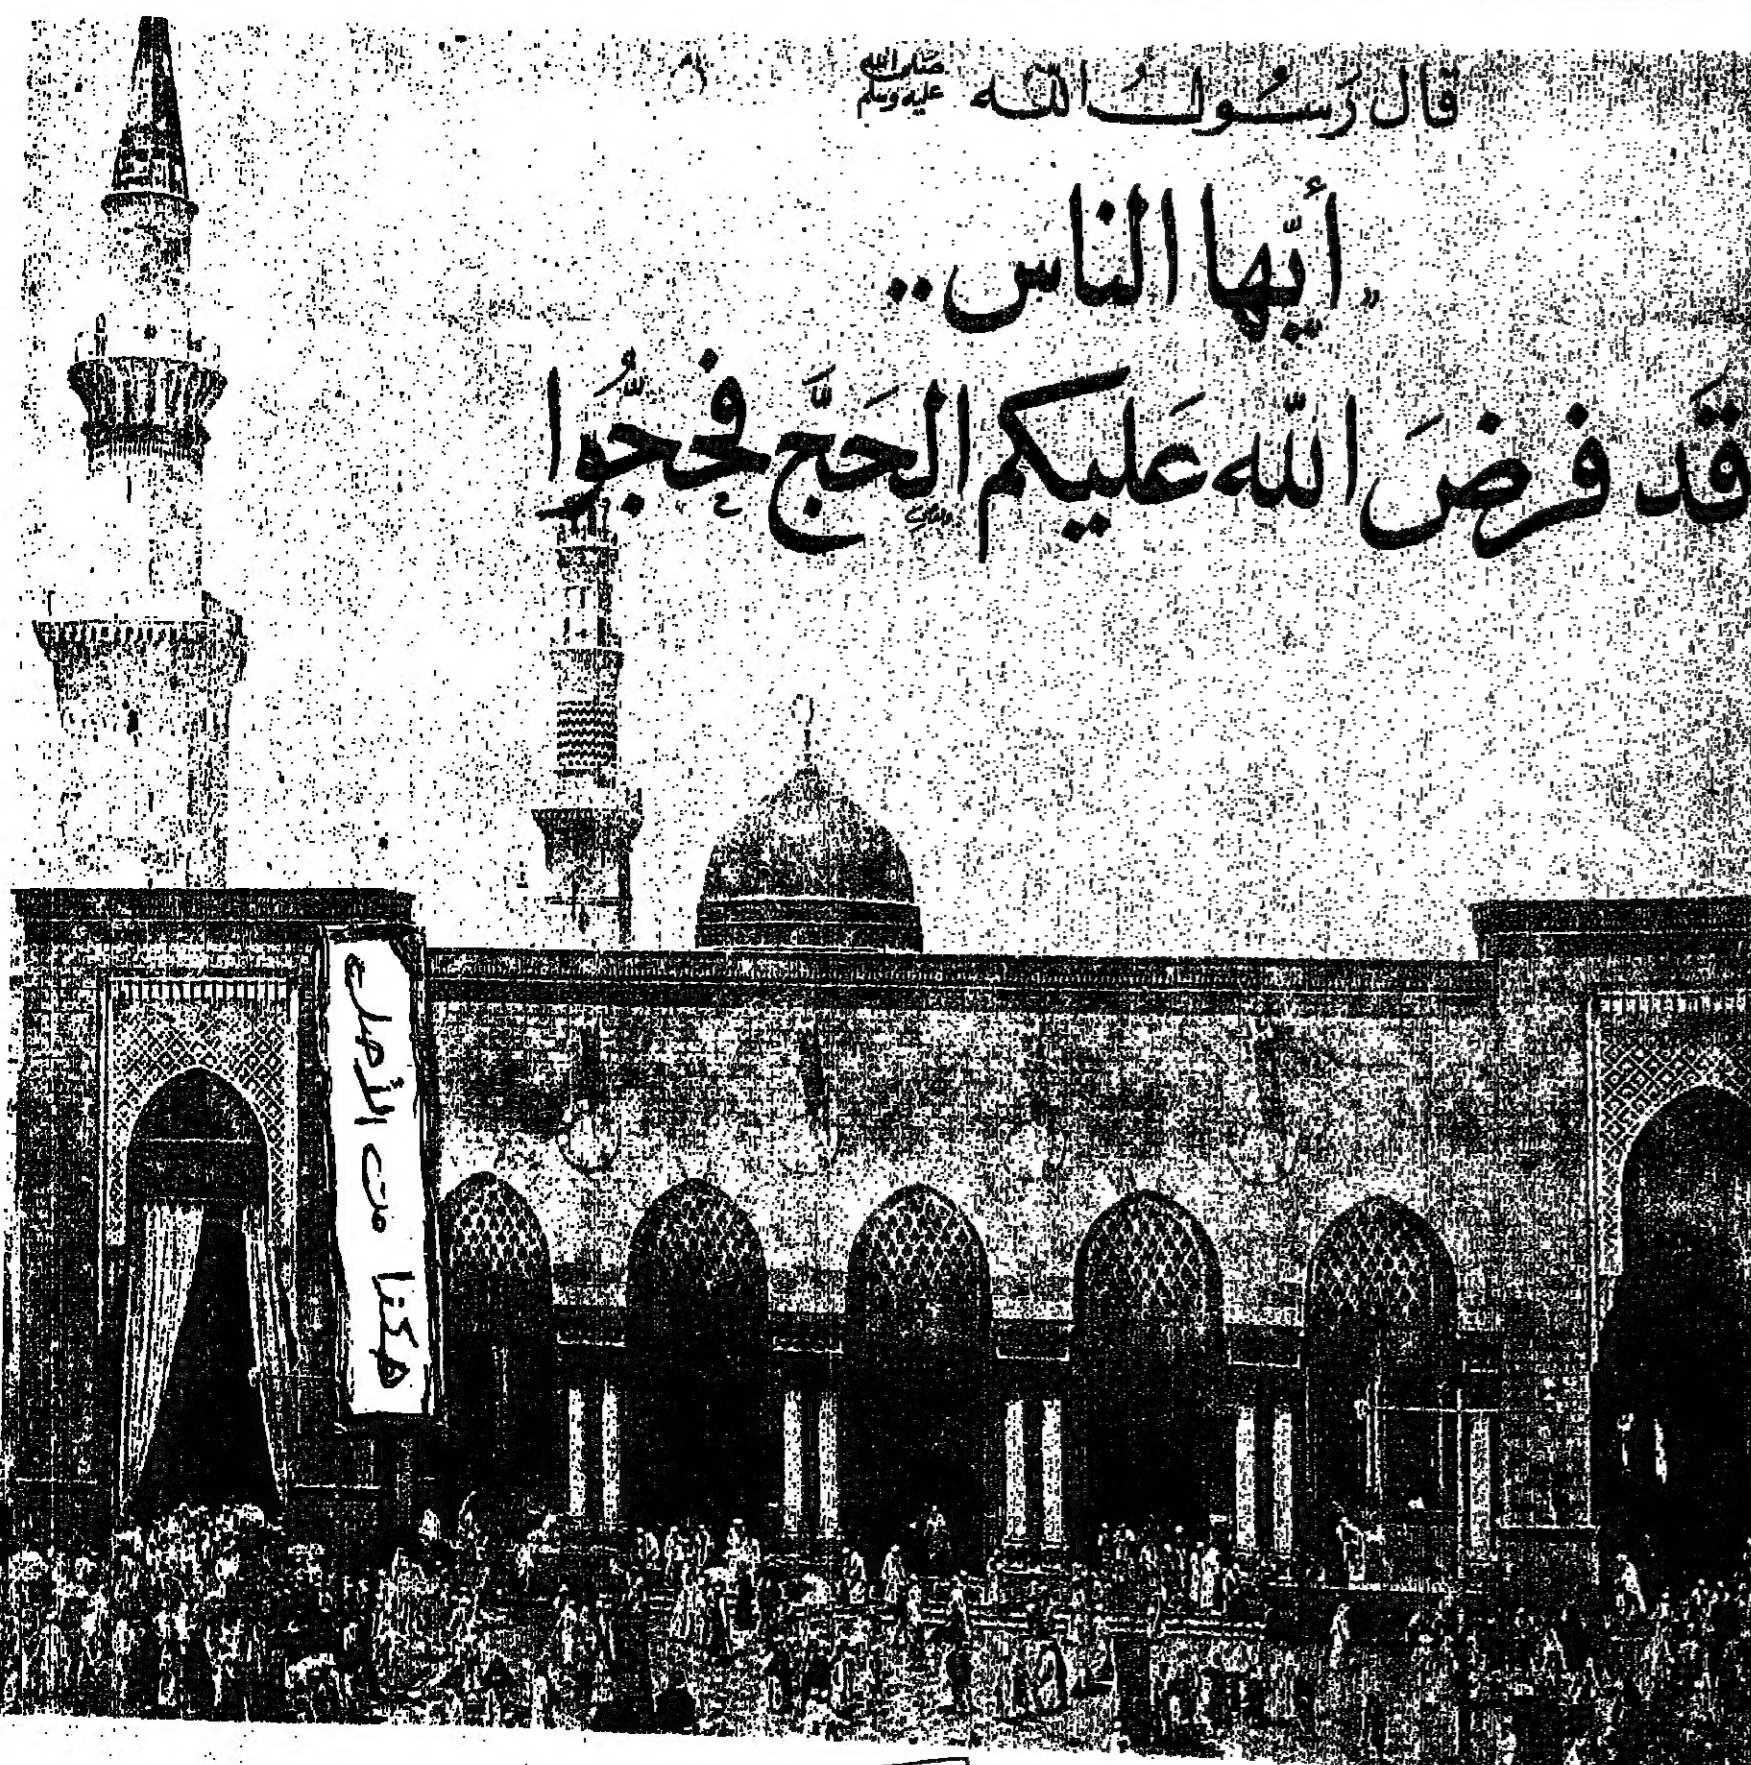 قَال رَسُولُ اللّه صَلى الله عليه وسلم
"أيّها الناس..
قَد فرضَ الله عَليكم الحَجَّ فحُجُّوا
هكذا من الأصل